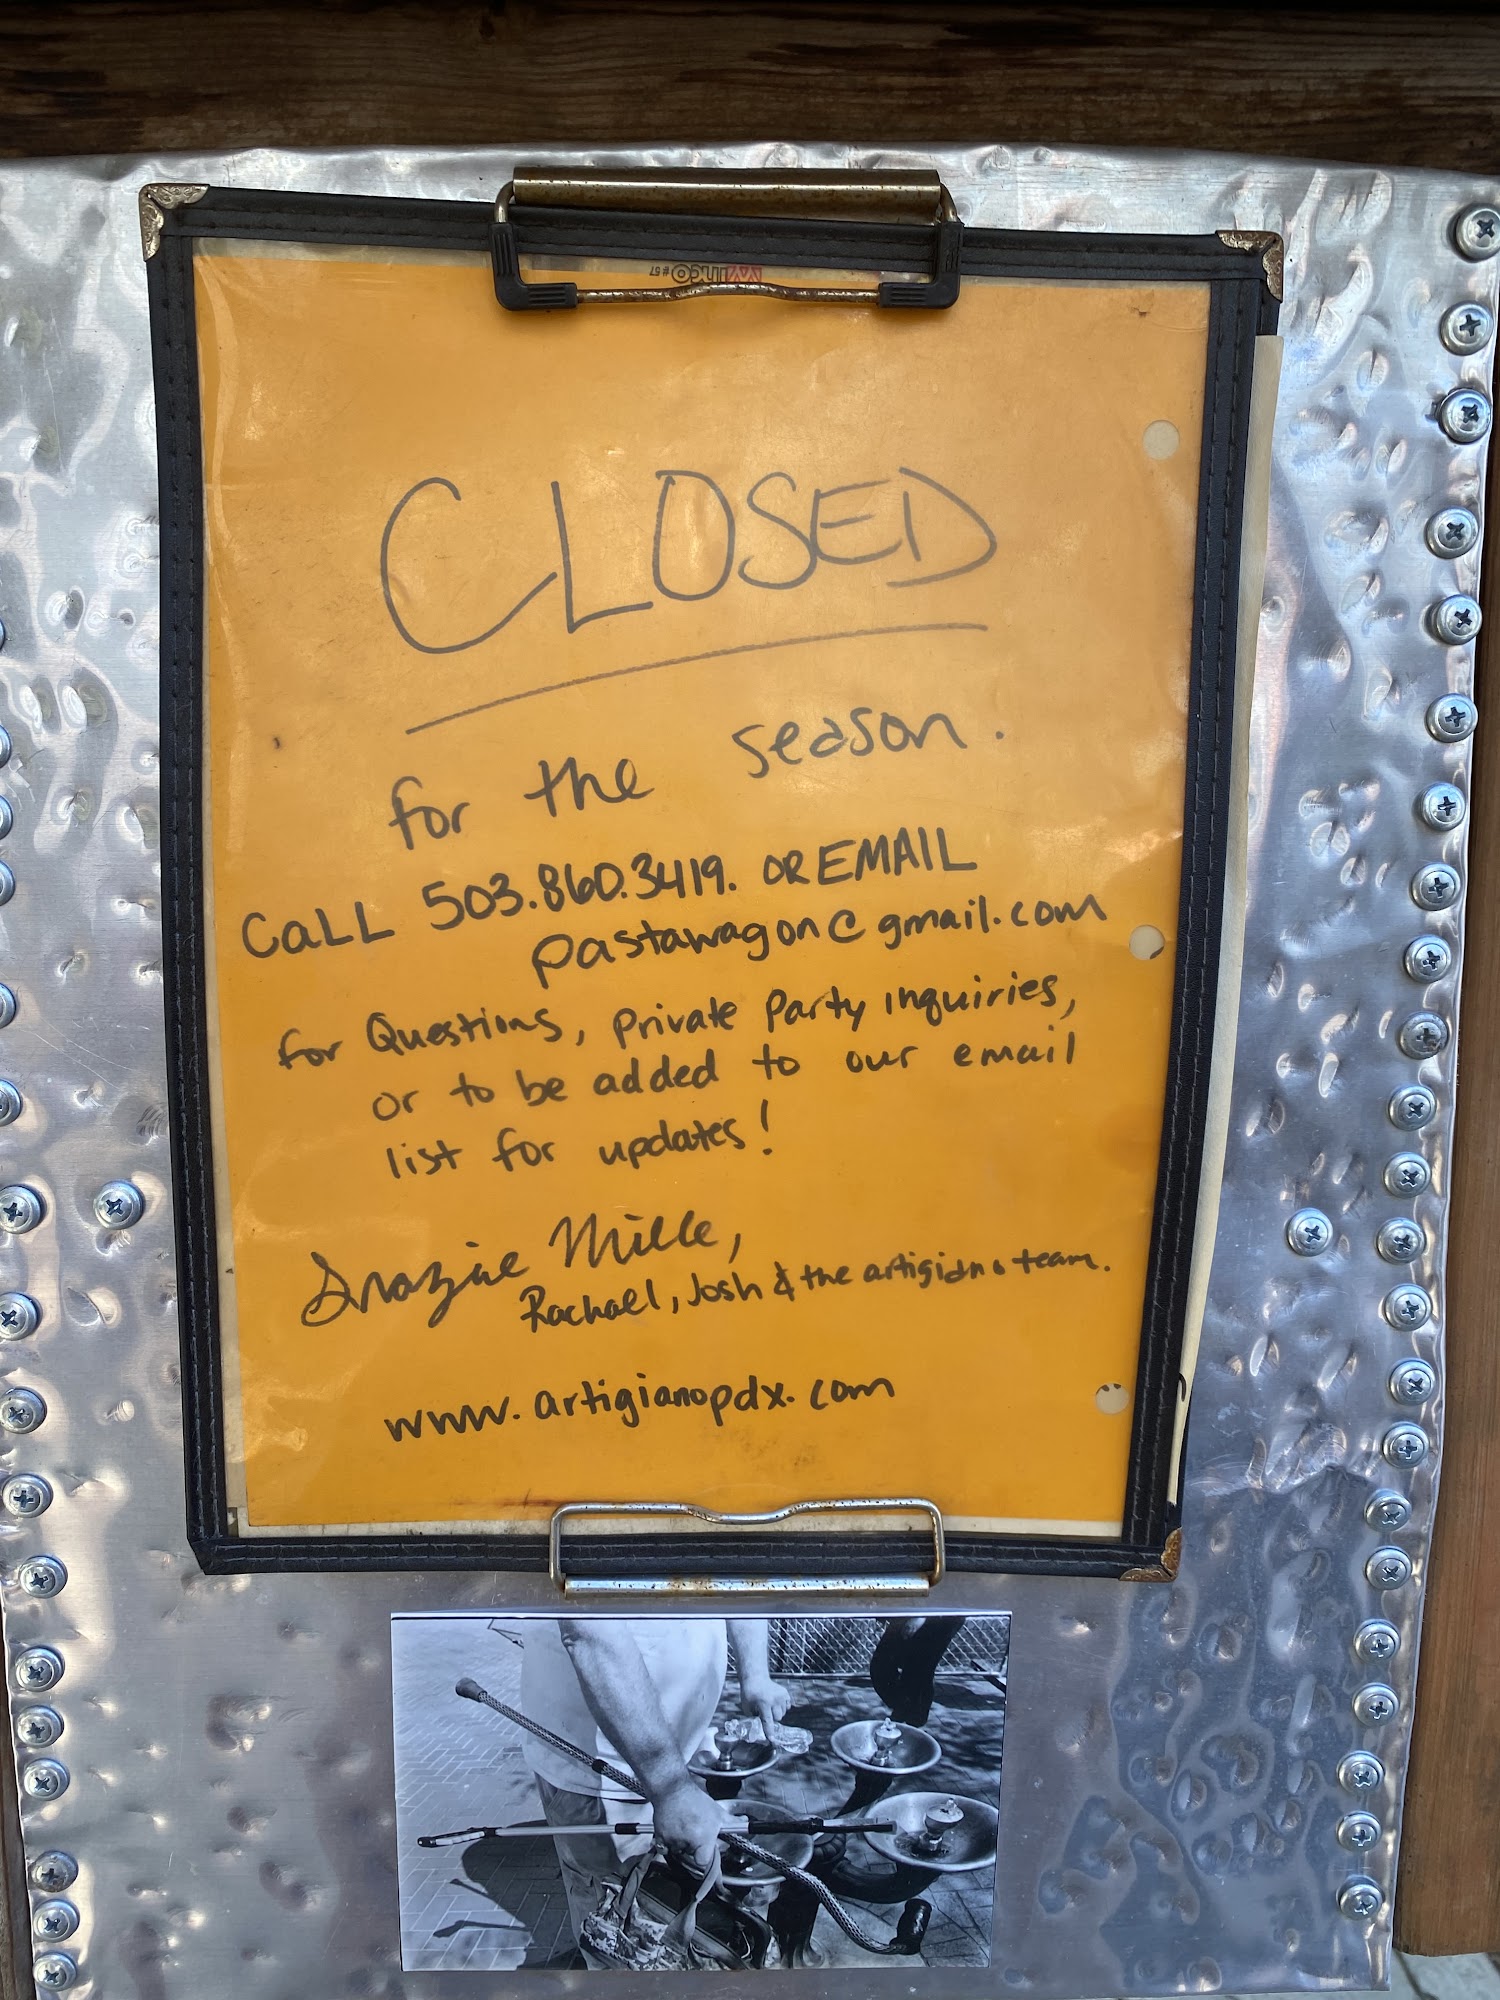 WINCO #57
CLOSED
for the season.
CALL 503.860.3419. OR EMAIL
pastawagon@gmail.com
for Questions, private party inquiries,
or to be added to our email
list for updates!
Grazie Mille,
Rachael, Josh & the artigiano team.
www.artigianopdx.com